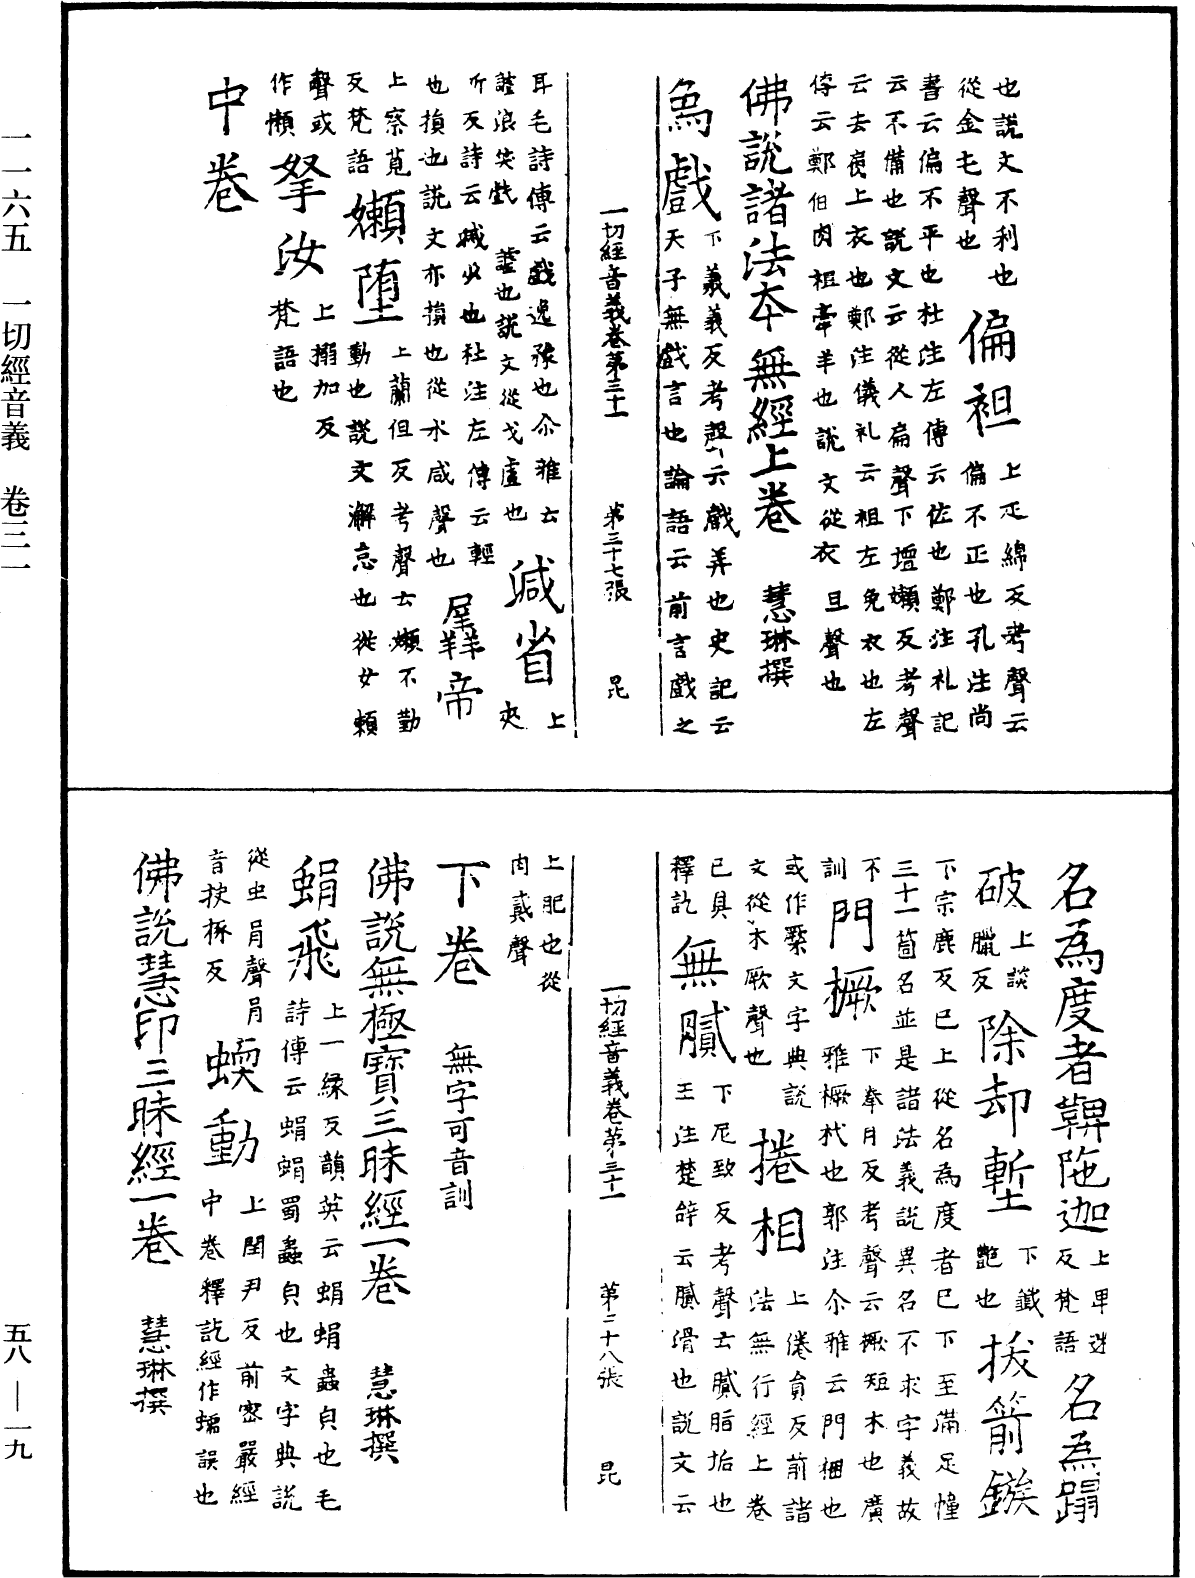 一一六五 一切經音義 卷三一
五八—一九
也說文不利也
從金毛聲也
偏袒
上疋綿反考聲云
偏不正也孔注尚
書云偏不平也杜注左傳云佐也鄭注礼記
云不備也說文云從人扁聲下壇嬾反考聲
云去𧛡上衣也鄭注儀礼云袒左免衣也左
傳云鄭伯肉袒牽羊也說文從衣旦聲也
佛說諸法本無經上卷 慧琳撰
為戲
下羲義反考聲云戲弄也史記云
天子無戲言也論語云前言戲之
一切經音義卷第三十一 第三十七張 昆
耳毛詩傳云戲逸豫也尒雅云
謔浪笑戲
謔也說文從戈䖒也
減省
上
夾
斤反詩云減少也杜注左傳云輕
也損也說文亦損也從水咸聲也
羼羝帝
上察莧
反梵語
嬾墮
上蘭但反考聲云嬾不勤
動也說文澥怠也從女賴
聲或
作懶
拏汝
上搦加反
梵語也
中卷
名為度者鞞陁迦
上卑迷
反梵語
名為蹋
破
上談
臘反
除却塹
下籤
艷也
拔箭鏃
下宗鹿反已上從名為度者已下至滿足幢
三十一箇名並是諸法義說異名不求字義故
不
訓
門橛
下拳月反考聲云橛短木也廣
雅橛杙也郭注尒雅云門梱也
或作橜文字典說
文從木厥聲也
捲相
上倦貟反前諸
法無行經上卷
已具
釋訖
無膩
下尼致反考聲云膩脂垢也
王注楚辝云膩滑也說文云
一切經音義卷第三十一 第三十八張 昆
上肥也從
肉貳聲
下卷 無字可音訓
佛說無極寶三昧經一卷 慧琳撰
蜎飛
上一緣反韻英云蜎蜎蟲皃也毛
詩傳云蜎蜎蜀蟲皃也文字典說
從虫肙聲肙
音抉㧻反
蝡動
上閏尹反前密嚴經
中卷釋訖經作蠕誤也
佛說慧印三昧經一卷 慧琳撰